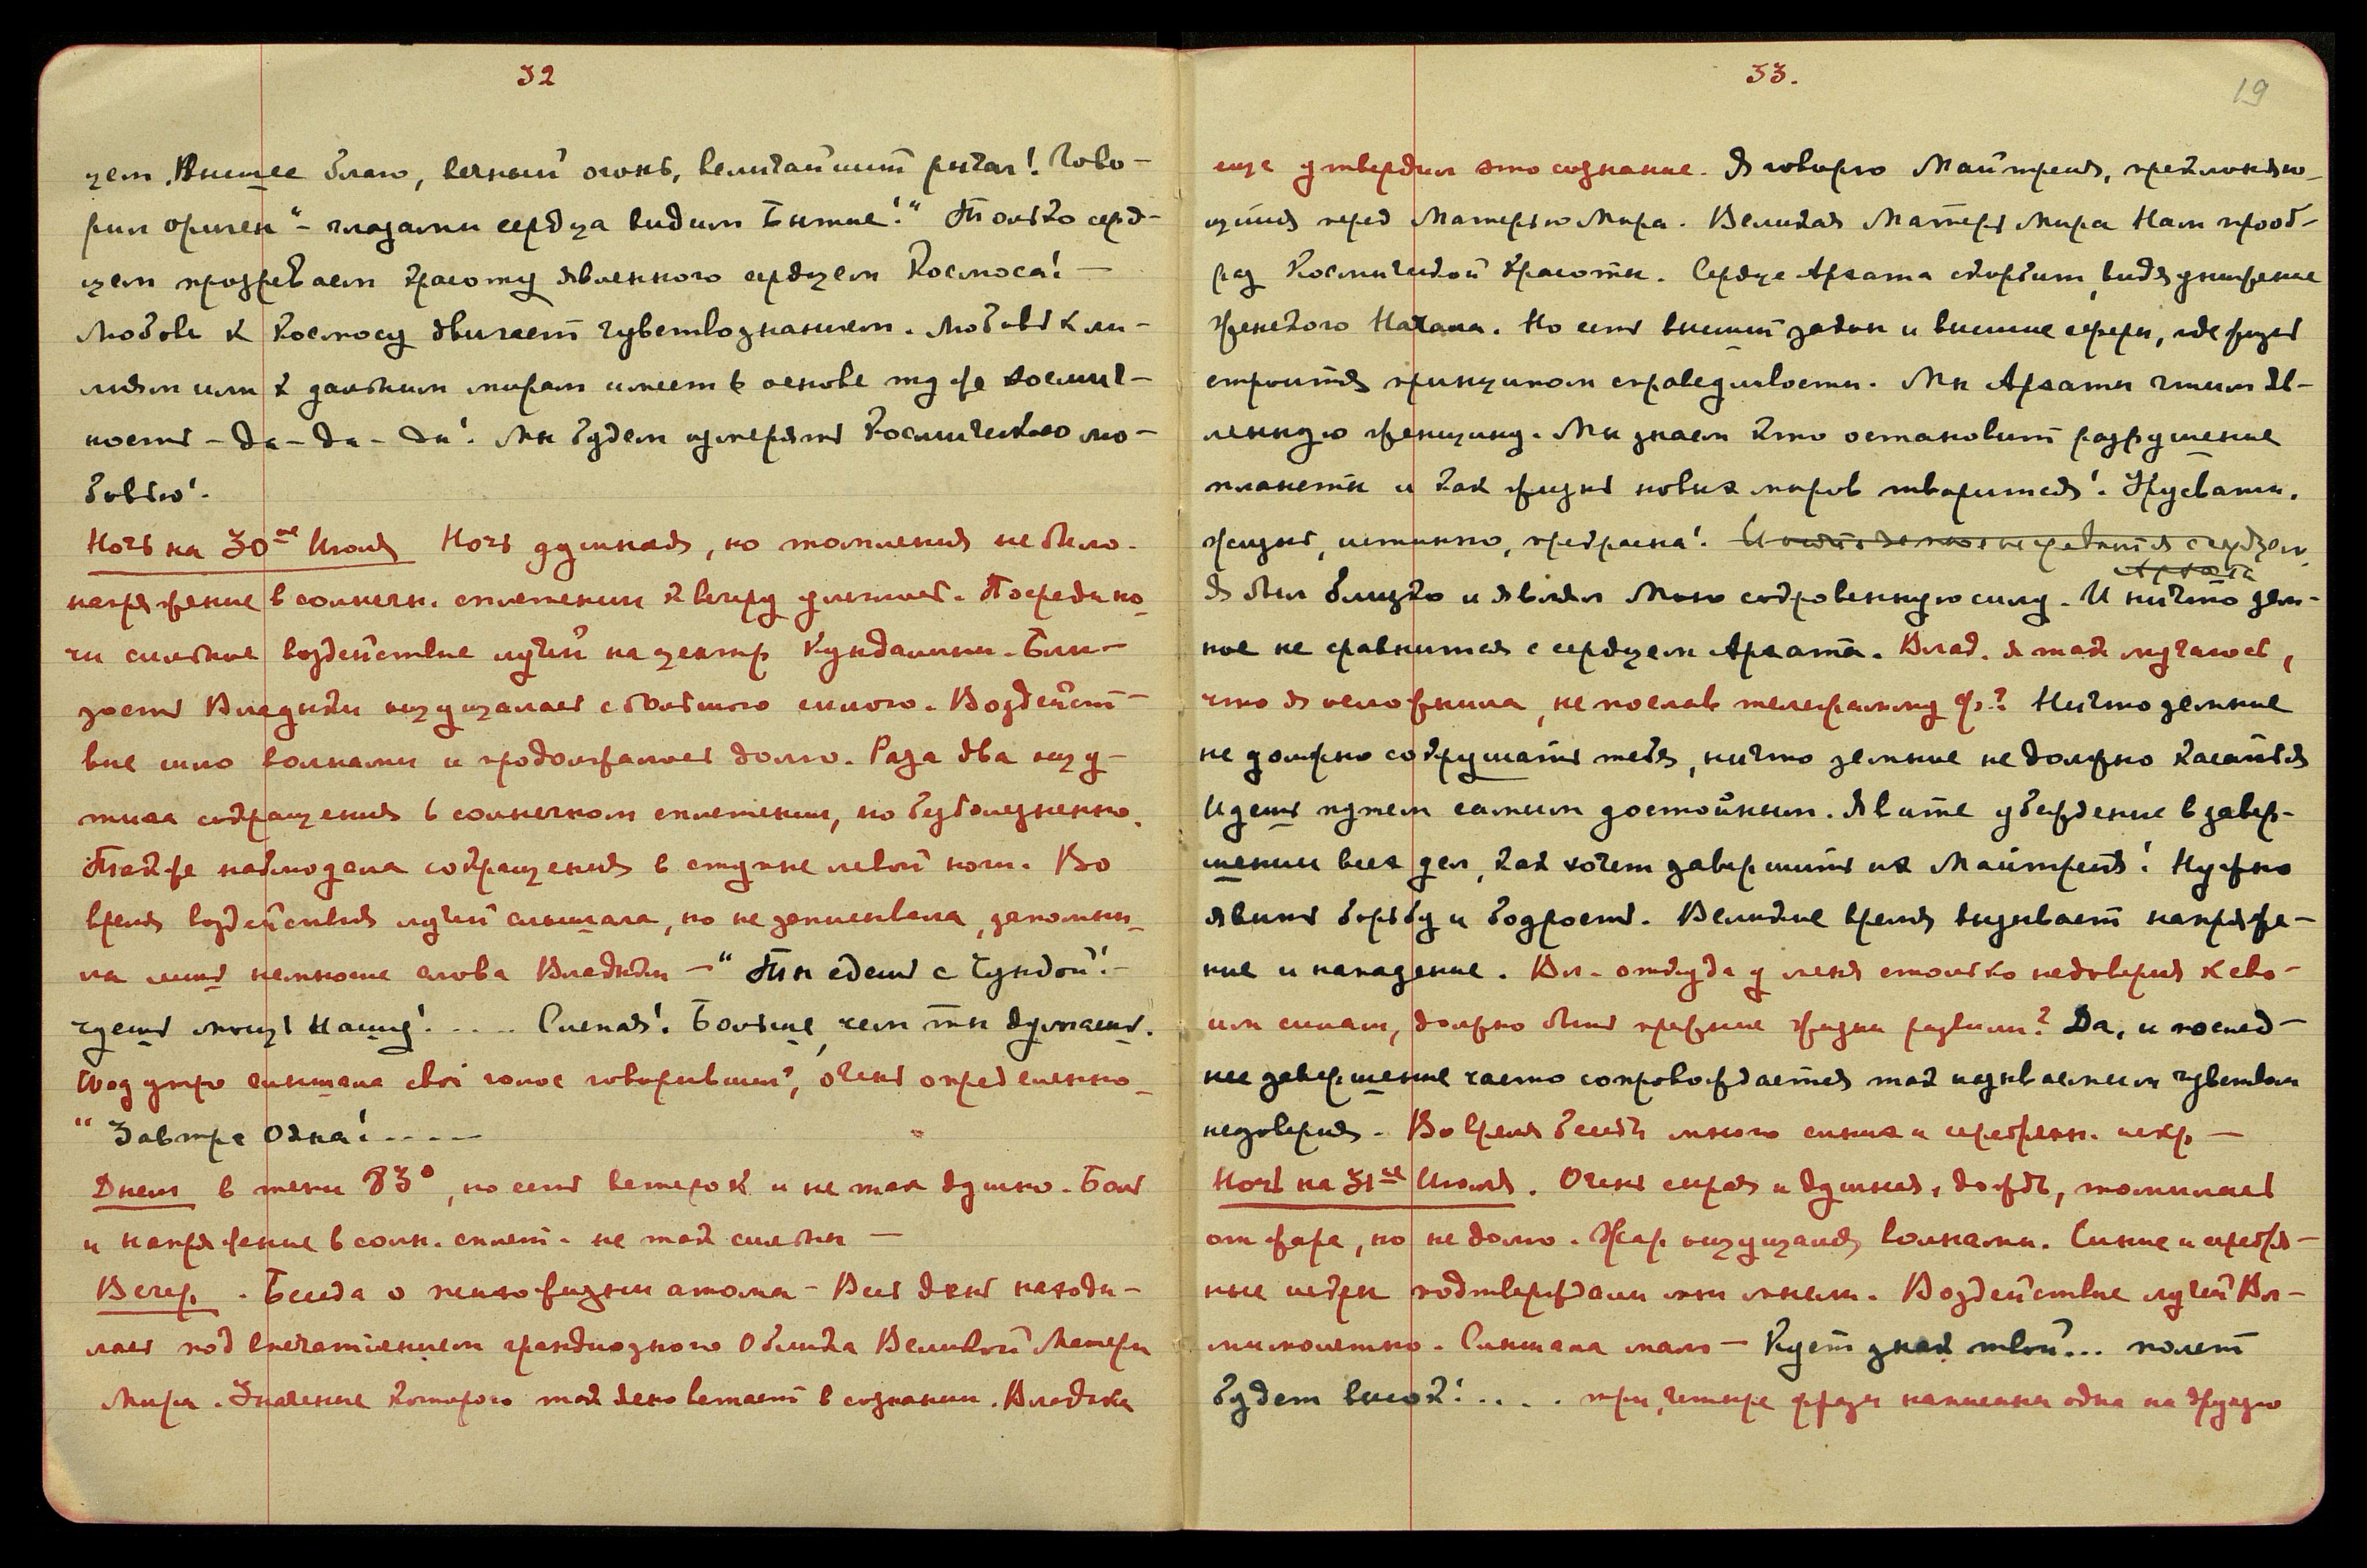 32
цем. Высшее благо, вечный огонь, величайший рычаг! Гово-
рил Ориген "- глазами сердца видим Бытие!" Только серд-
цем прозреваем красоту явленного сердцем Космоса! —
Любовь к Космосу двигает чувствознанием. Любовь к ми-
лым или к дальным мирам имеет в основе ту же космич-
ность - да - да - да! Мы будем измерять Космическою лю-
бовью!
Ночь на 30ое Июля Ночь душная, но томления не было.
напряжение в солнечн. сплетении к вечеру усилилось. Посреди но-
чи сильное воздействие лучей на центр Кундалини. Бли-
зость Владыки ощущалась с большою силою. Воздейст-
вие шло волнами и продолжалось долго. Раза два ощу-
тила сокращения в солнечном сплетении, но безболезненно.
Также наблюдала сокращения в ступне левой ноги. Во
время воздействия лучей слышала, но не записывала, запомни-
ла лишь немногие слова Владыки — "Ты едешь с Чундой! -
чуешь мощь Нашу! . . . . Слепая! Больше, чем ты думаешь.
Под утро слышала свой голос говоривший, очень определенно -
" Завтра Одна! - - - -
Днем в тени 83°, но есть ветерок и не так душно. Боль
и напряжение в солн. сплет. не так сильны —
Вечер. Беседа о психожизни атома - Весь день находи-
лась под впечатлением грандиозного Облика Великой Матери
Мира. Значение которого так ясно встает в сознании. Владыка
33.
19
еще утвердил это сознание. Я говорю Майтрейя, преклоняю-
щийся перед Матерью Мира. Великая Матерь Мира Нам прооб-
раз Космической Красоты. Сердце Архата скорбит, видя унижение
женского Начала. Но есть высший закон и высшие сферы, где жизнь
строится принципом справедливости. Мы Архаты чтим яв-
ленную женщину. Мы знаем кто остановит разрушение
планеты и как жизнь новых миров творится! Урусвати.
Жизнь, истинно, прекрасна! И ничто земное не сравнится с сердцем
Архата
Я был близко и являл Мою сокровенную силу. И ничто зем-
ное не сравнится с сердцем Архата. Влад. я так мучаюсь,
что я осложнила, не послав телеграмму Ф.? Ничто земные
не должно сокрушать тебя, ничто земные не должно касаться
Идешь путем самым достойным. Явите убеждение в завер-
шении всех дел, как хочет завершить их Майтрейя! Нужно
явить борьбу и бодрость. Великие время вызывает напряже-
ние и нападение. Вл. откуда у меня столько недоверия к сво-
им силам, должно быть прежние жизни развили? Да, и послед-
нее завершение часто сопровождается так называемым чувством
недоверия. Во время беседы много синих и серебрян. искр —
Ночь на 31ое Июля. Очень сырая и душная, дождь, томилась
от жара, но не долго. Жар ощущался волнами. Синие и серебря-
ные искры подтверждали мои мысли. Воздействие лучей Вл-
мимолетно. Слышала мало — Кует знак твой!... полет
будет высок! . . . . три, четыре фразы написаны одна на другую